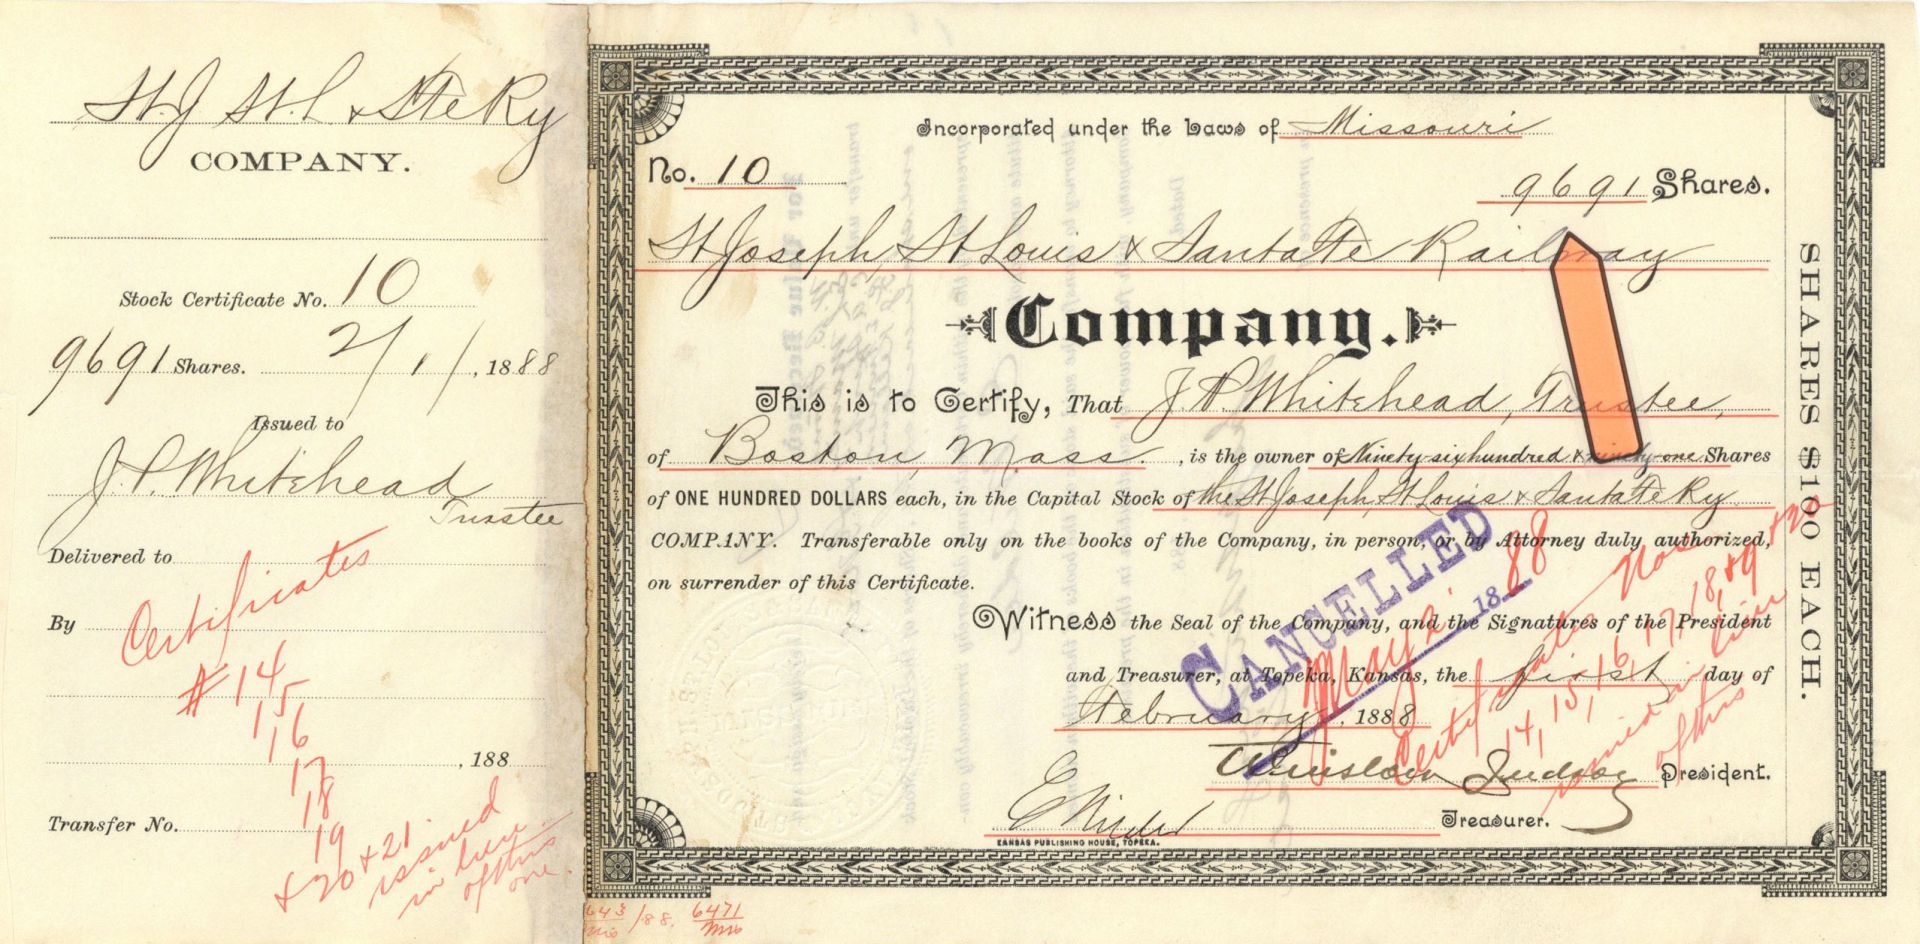 St. J St. L & S Fe Ry
COMPANY.
Stock Certificate No. 10
9691 Shares. 2/1/, 1888
Issued to
J. P. Whitehead
Trustee
Delivered to
By
Certificates
# 14
15
16
17
18
19
& 20 & 21
issued
in lieu
of this
one.
, 188
Transfer No.
Incorporated under the Laws of Missouri
No. 10
9691 Shares.
St Joseph, St Louis & Santa Fe Railway
Company.
This is to Certify, That J. P. Whitehead, Trustee,
of Boston, Mass. , is the owner of Ninety six hundred & ninety-one Shares
of ONE HUNDRED DOLLARS each, in the Capital Stock of the St Joseph, St Louis & Santa Fe Ry
COMPANY. Transferable only on the books of the Company, in person, or by Attorney duly authorized,
on surrender of this Certificate.
Witness the Seal of the Company, and the Signatures of the President
and Treasurer, at Topeka, Kansas, the first day of
February, 1888
Winslow Judson President.
E Wilder Treasurer.
KANSAS PUBLISHING HOUSE, TOPEKA.
SHARES $100 EACH.
CANCELLED
May 2 1888
Certificates Nos
14, 15, 16, 17, 18, 19 & 20
issued in lieu
of this
643/88. 6471